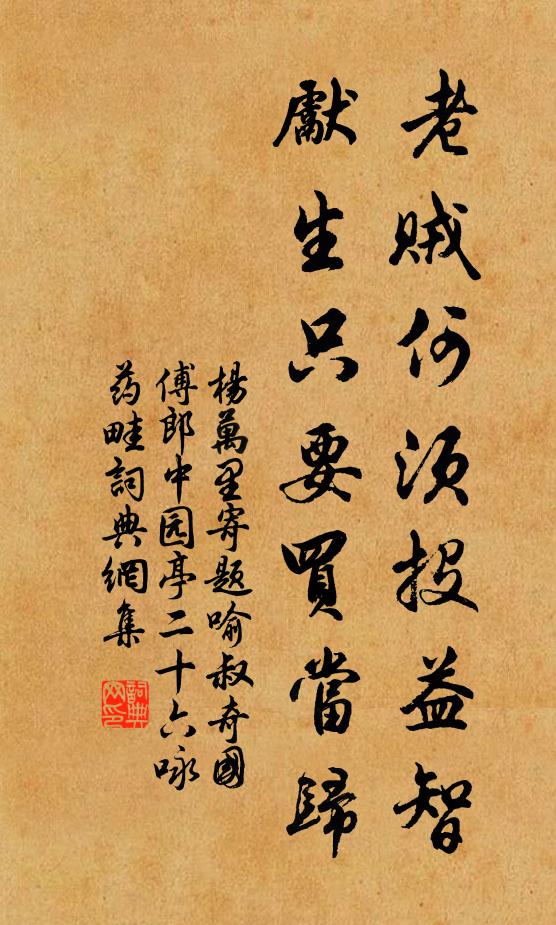 老賊何須投益智
獻生只要買當歸
楊萬里寄題喻叔奇國
傅郎中园亭二十六咏
药畦詞典網集
詞典网印